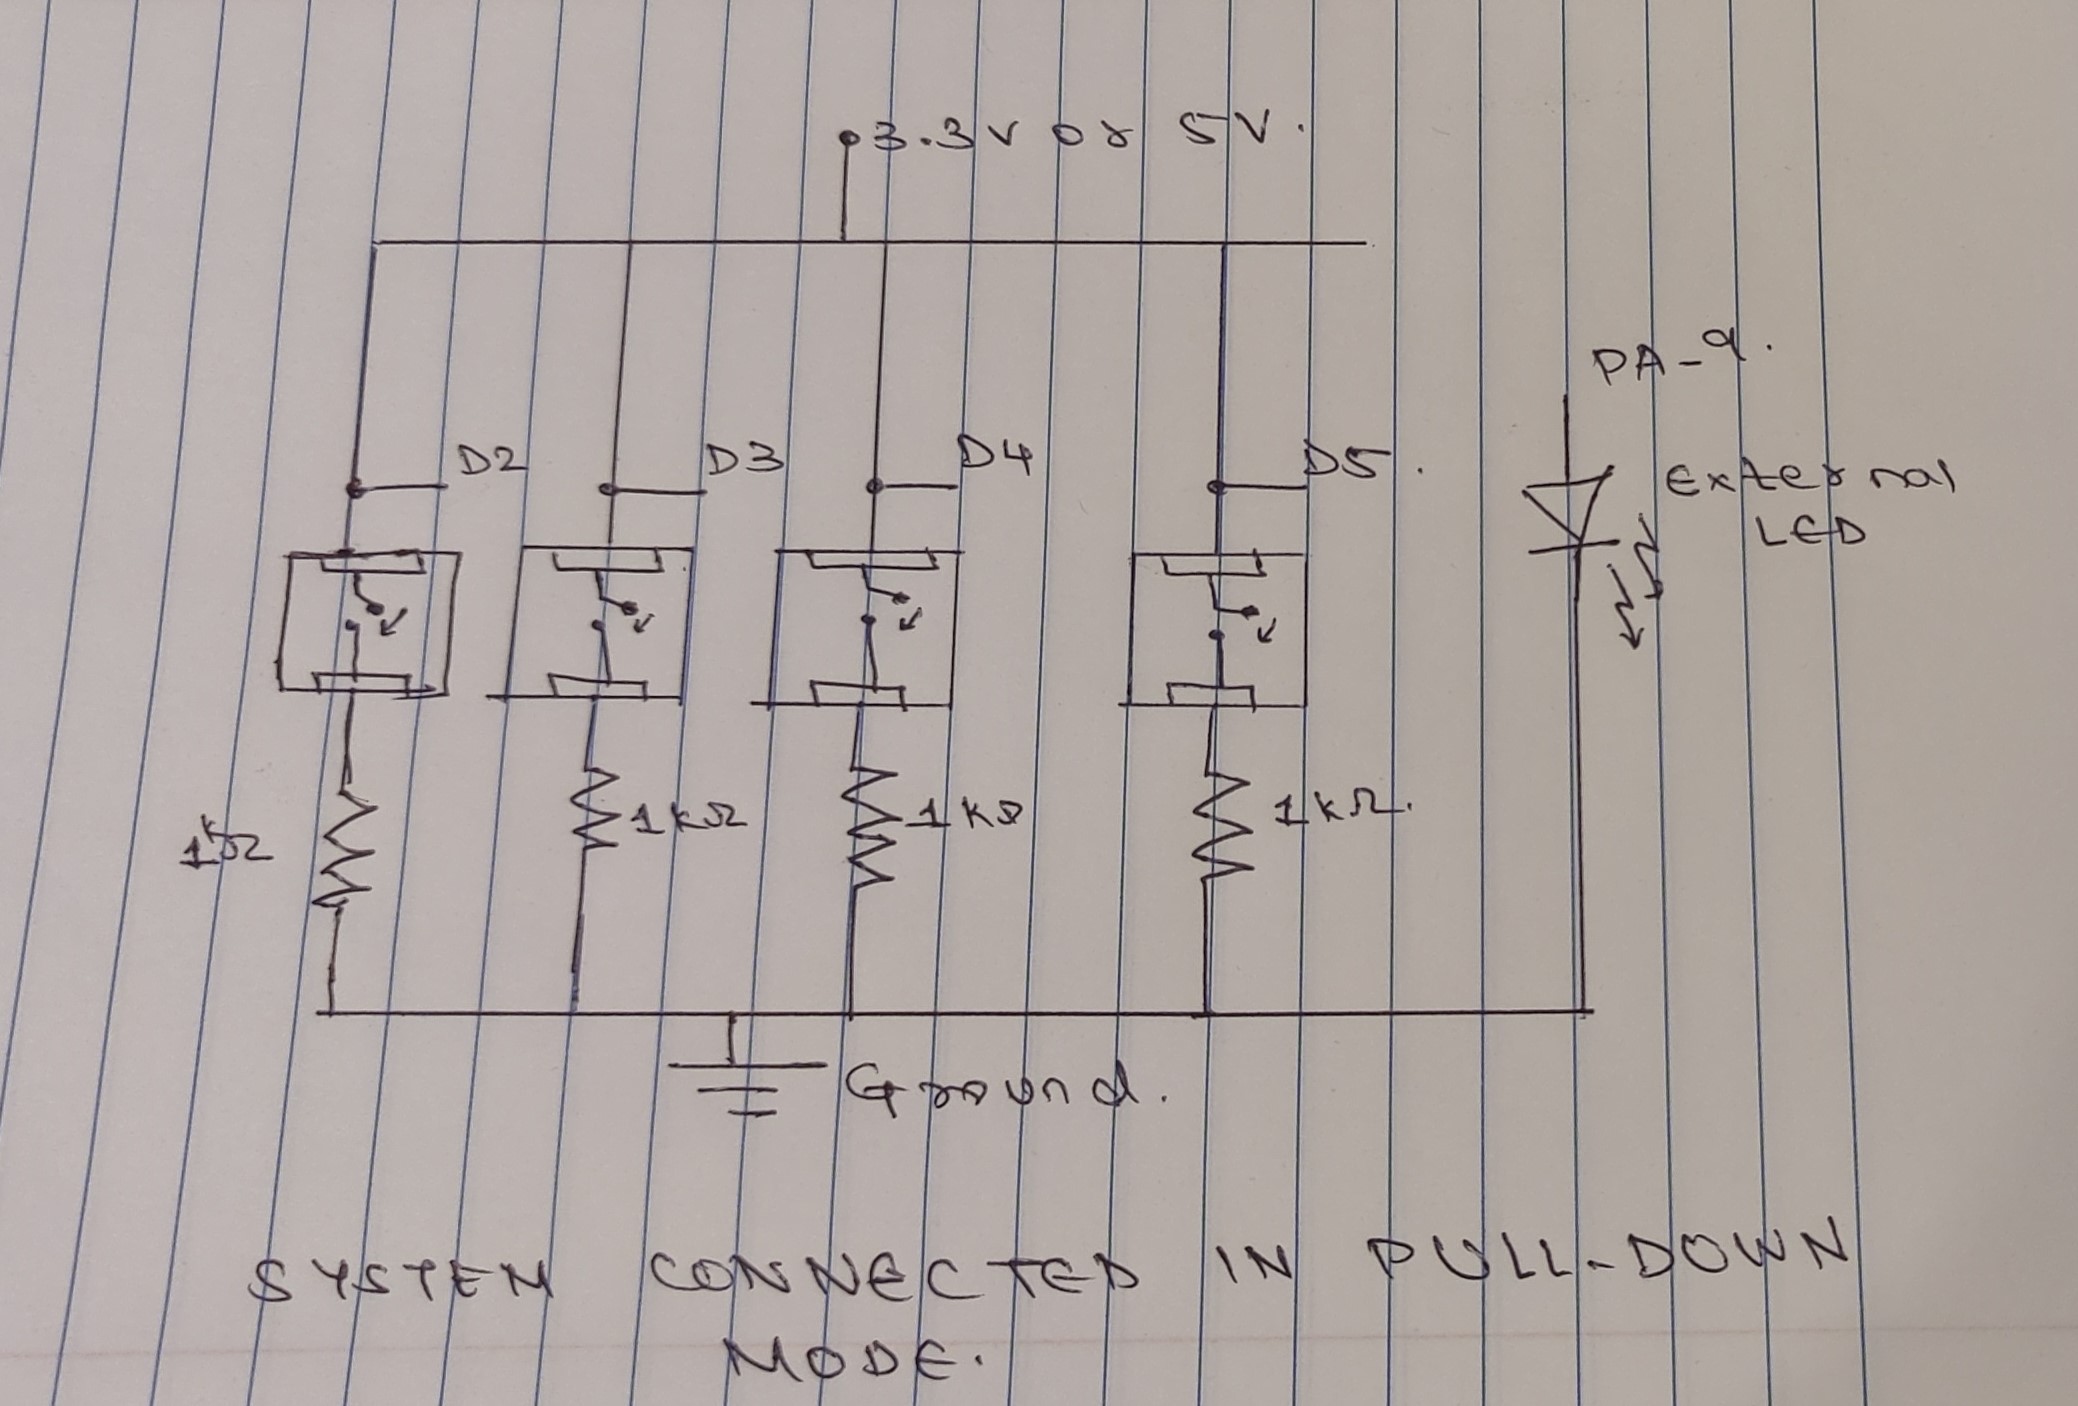 3.3v or 5V.
PA-9.
D2 D3 D4 D5.
External
LED
1kΩ 1kΩ 1kΩ 1kΩ.
Ground.
SYSTEM CONNECTED IN PULL-DOWN
MODE.